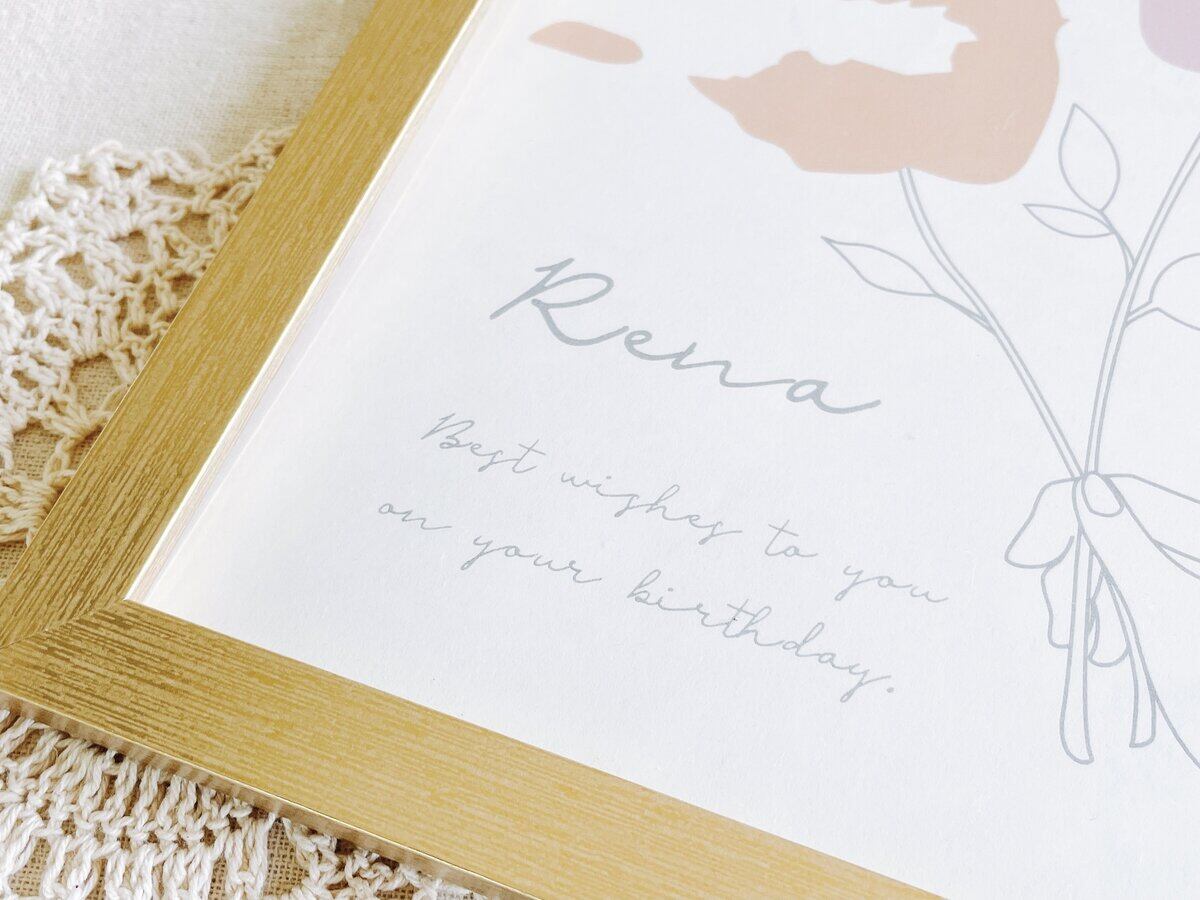 Rena
Best wishes to you
on your birthday.